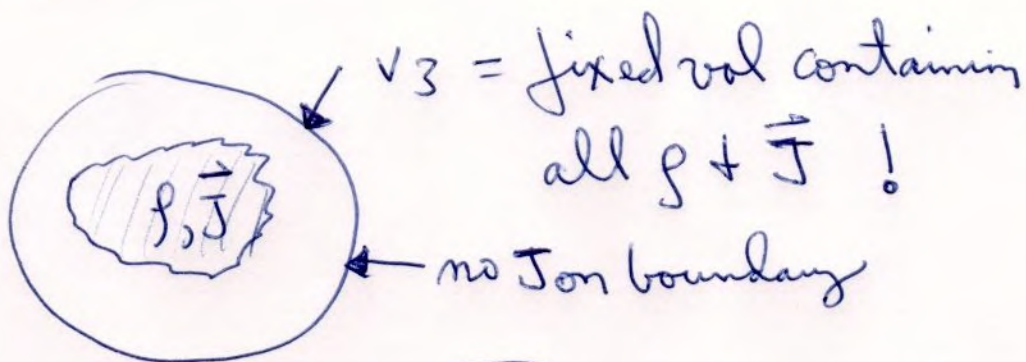 V3 = fixed vol containing
all ρ + J⃗ !
ρ, J⃗
no J on boundary